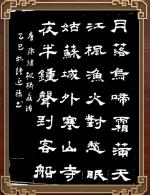 月落烏啼霜滿天
江楓漁火對愁眠
姑蘇城外寒山寺
夜半鐘聲到客船
唐張繼楓橋夜泊
乙巳秋